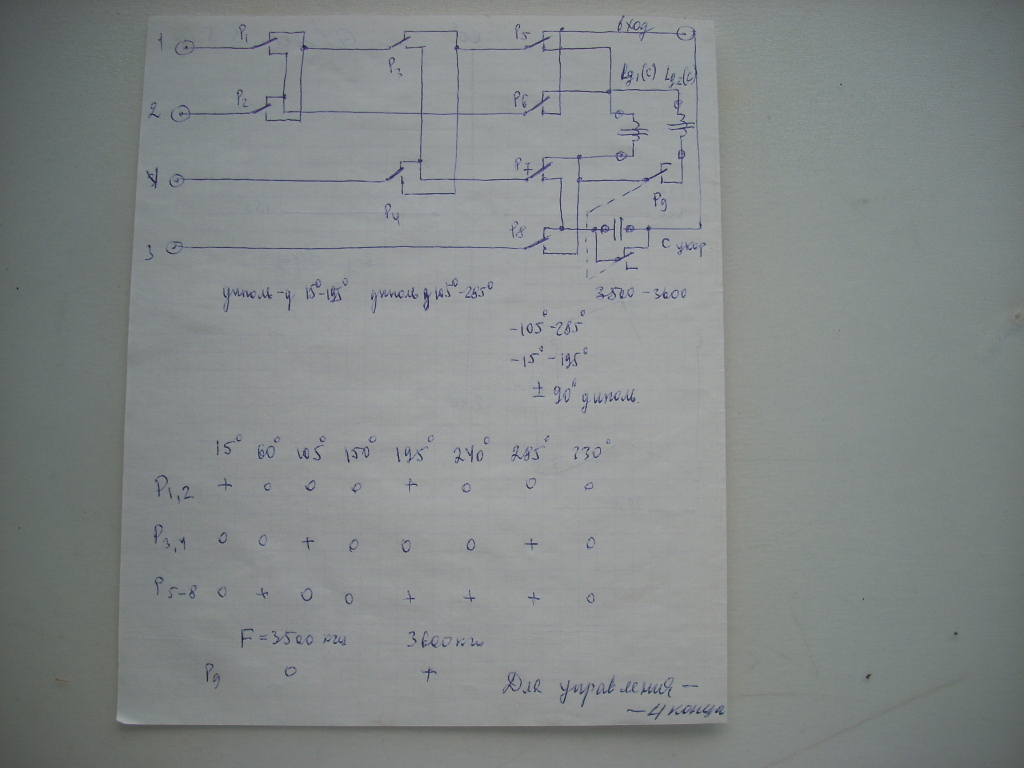 вход
1 P1 P3 P5
Lg1(c) Lg2(c)
2 P2 P6
4 P4 P7 P9
3 P8 С укор
диполь-д 15°-195° диполь д 105°-285° 3500-3600
-105°-285°
-15°-195°
± 90° диполь
15° 60° 105° 150° 195° 240° 285° 330°
P1,2 + 0 0 0 + 0 0 0
P3,4 0 0 + 0 0 0 + 0
P5-8 0 + 0 0 + + + 0
F = 3500 кгц 3600 кгц
P9 0 +
Для управления -
- 4 конца